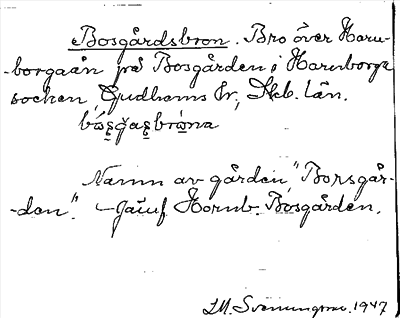 Bosgårdsbron. Bro över Horn-
borgaån på Bosgården i Hornborga
socken, Gudhems hr, Skb. län.
Namn av gården "Borsgår-
den". Jämf Hornb. Bosgården.
1947